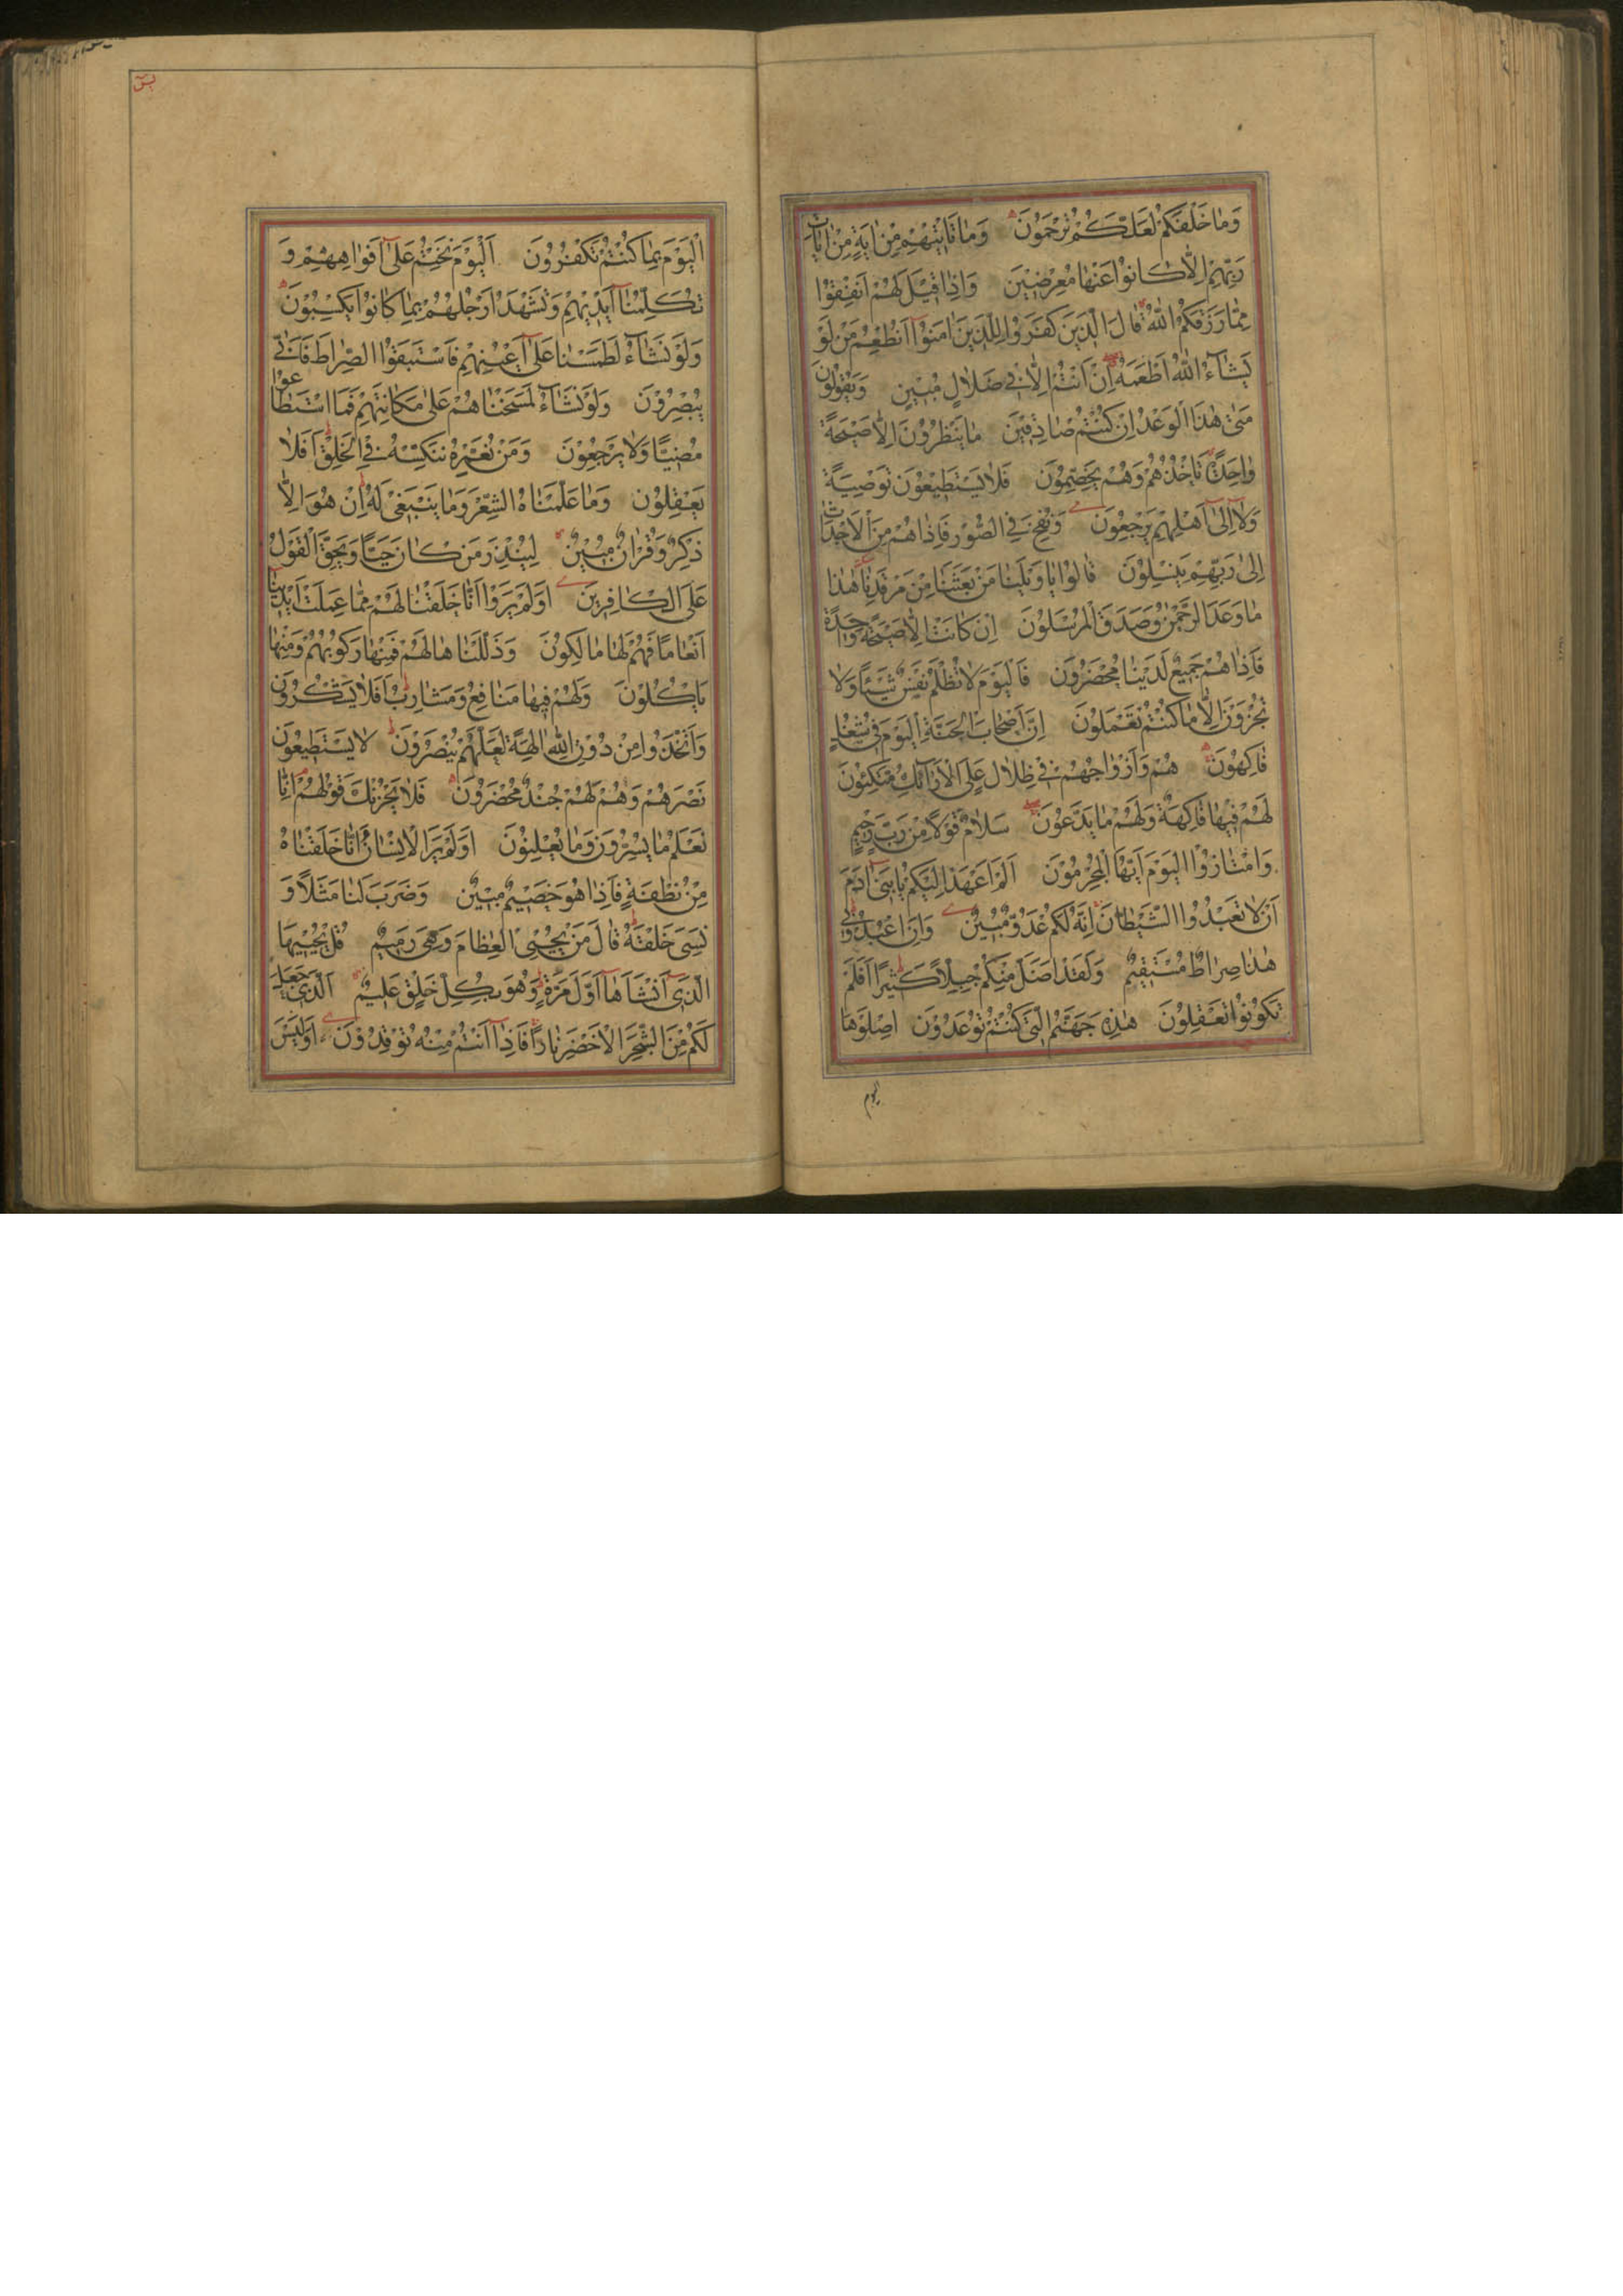 وَمَا خَلْفَكُمْ لَعَلَّكُمْ تُرْحَمُونَ وَمَا تَأْتِيهِمْ مِنْ اٰيَةٍ مِنْ اٰيَاتِ
رَبِّهِمْ اِلَّا كَانُوا عَنْهَا مُعْرِضِينَ وَاِذَا قِيلَ لَهُمْ اَنْفِقُوا
مِمَّا رَزَقَكُمُ اللّٰهُ قَالَ الَّذِينَ كَفَرُوا لِلَّذِينَ اٰمَنُوا اَنُطْعِمُ مَنْ لَوْ
يَشَاءُ اللّٰهُ اَطْعَمَهُ اِنْ اَنْتُمْ اِلَّا فِي ضَلَالٍ مُبِينٍ وَيَقُولُونَ
مَتٰى هٰذَا الْوَعْدُ اِنْ كُنْتُمْ صَادِقِينَ مَا يَنْظُرُونَ اِلَّا صَيْحَةً
وَاحِدَةً تَأْخُذُهُمْ وَهُمْ يَخِصِّمُونَ فَلَا يَسْتَطِيعُونَ تَوْصِيَةً
وَلَا اِلٰى اَهْلِهِمْ يَرْجِعُونَ وَنُفِخَ فِي الصُّورِ فَاِذَا هُمْ مِنَ الْاَجْدَاثِ
اِلٰى رَبِّهِمْ يَنْسِلُونَ قَالُوا يَا وَيْلَنَا مَنْ بَعَثَنَا مِنْ مَرْقَدِنَا هٰذَا
مَا وَعَدَ الرَّحْمٰنُ وَصَدَقَ الْمُرْسَلُونَ اِنْ كَانَتْ اِلَّا صَيْحَةً وَاحِدَةً
فَاِذَا هُمْ جَمِيعٌ لَدَيْنَا مُحْضَرُونَ فَالْيَوْمَ لَا تُظْلَمُ نَفْسٌ شَيْئًا وَلَا
تُجْزَوْنَ اِلَّا مَا كُنْتُمْ تَعْمَلُونَ اِنَّ اَصْحَابَ الْجَنَّةِ الْيَوْمَ فِي شُغُلٍ
فَاكِهُونَ هُمْ وَاَزْوَاجُهُمْ فِي ظِلَالٍ عَلَى الْاَرَائِكِ مُتَّكِئُونَ
لَهُمْ فِيهَا فَاكِهَةٌ وَلَهُمْ مَا يَدَّعُونَ سَلَامٌ قَوْلًا مِنْ رَبٍّ رَحِيمٍ
وَامْتَازُوا الْيَوْمَ اَيُّهَا الْمُجْرِمُونَ اَلَمْ اَعْهَدْ اِلَيْكُمْ يَا بَنِي اٰدَمَ
اَنْ لَا تَعْبُدُوا الشَّيْطَانَ اِنَّهُ لَكُمْ عَدُوٌّ مُبِينٌ وَاَنِ اعْبُدُونِي
هٰذَا صِرَاطٌ مُسْتَقِيمٌ وَلَقَدْ اَضَلَّ مِنْكُمْ جِبِلًّا كَثِيرًا اَفَلَمْ
تَكُونُوا تَعْقِلُونَ هٰذِهِ جَهَنَّمُ الَّتِي كُنْتُمْ تُوعَدُونَ اِصْلَوْهَا
اليوم
يس
الْيَوْمَ بِمَا كُنْتُمْ تَكْفُرُونَ اَلْيَوْمَ نَخْتِمُ عَلٰى اَفْوَاهِهِمْ وَ
تُكَلِّمُنَا اَيْدِيهِمْ وَتَشْهَدُ اَرْجُلُهُمْ بِمَا كَانُوا يَكْسِبُونَ
وَلَوْ نَشَاءُ لَطَمَسْنَا عَلٰى اَعْيُنِهِمْ فَاسْتَبَقُوا الصِّرَاطَ فَاَنّٰى
يُبْصِرُونَ وَلَوْ نَشَاءُ لَمَسَخْنَاهُمْ عَلٰى مَكَانَتِهِمْ فَمَا اسْتَطَاعُوا
مُضِيًّا وَلَا يَرْجِعُونَ وَمَنْ نُعَمِّرْهُ نُنَكِّسْهُ فِي الْخَلْقِ اَفَلَا
يَعْقِلُونَ وَمَا عَلَّمْنَاهُ الشِّعْرَ وَمَا يَنْبَغِي لَهُ اِنْ هُوَ اِلَّا
ذِكْرٌ وَقُرْاٰنٌ مُبِينٌ لِيُنْذِرَ مَنْ كَانَ حَيًّا وَيَحِقَّ الْقَوْلُ
عَلَى الْكَافِرِينَ اَوَلَمْ يَرَوْا اَنَّا خَلَقْنَا لَهُمْ مِمَّا عَمِلَتْ اَيْدِينَا
اَنْعَامًا فَهُمْ لَهَا مَالِكُونَ وَذَلَّلْنَاهَا لَهُمْ فَمِنْهَا رَكُوبُهُمْ وَمِنْهَا
يَأْكُلُونَ وَلَهُمْ فِيهَا مَنَافِعُ وَمَشَارِبُ اَفَلَا يَشْكُرُونَ
وَاتَّخَذُوا مِنْ دُونِ اللّٰهِ اٰلِهَةً لَعَلَّهُمْ يُنْصَرُونَ لَا يَسْتَطِيعُونَ
نَصْرَهُمْ وَهُمْ لَهُمْ جُنْدٌ مُحْضَرُونَ فَلَا يَحْزُنْكَ قَوْلُهُمْ اِنَّا
نَعْلَمُ مَا يُسِرُّونَ وَمَا يُعْلِنُونَ اَوَلَمْ يَرَ الْاِنْسَانُ اَنَّا خَلَقْنَاهُ
مِنْ نُطْفَةٍ فَاِذَا هُوَ خَصِيمٌ مُبِينٌ وَضَرَبَ لَنَا مَثَلًا وَ
نَسِيَ خَلْقَهُ قَالَ مَنْ يُحْيِي الْعِظَامَ وَهِيَ رَمِيمٌ قُلْ يُحْيِيهَا
الَّذِي اَنْشَاَهَا اَوَّلَ مَرَّةٍ وَهُوَ بِكُلِّ خَلْقٍ عَلِيمٌ اَلَّذِي جَعَلَ
لَكُمْ مِنَ الشَّجَرِ الْاَخْضَرِ نَارًا فَاِذَا اَنْتُمْ مِنْهُ تُوقِدُونَ اَوَلَيْسَ